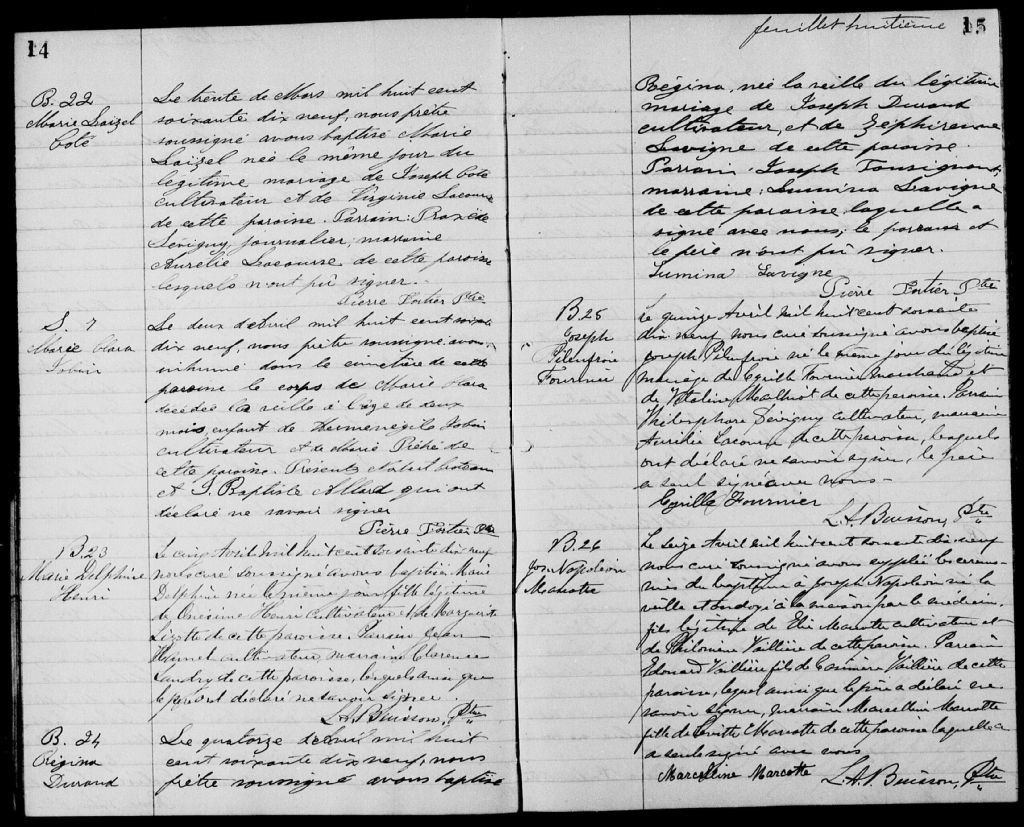 14
B. 22
Marie Laizel
Coté
Le trente de Mars mil huit cent
soixante dix neuf, nous prêtre
soussigné avons baptisé Marie
Laizel née le même jour du
légitime mariage de Joseph Coté
cultivateur et de Virginie Lacourse
de cette paroise. Parrain: Praxède
Sevigny, journalier; marraine
Aurélie Lacourse de cette paroisse
lesquels n'ont pû signer.
Pierre Fortier Ptre
S. 7
Marie Clara
le deux d'Avril mil huit cent soixante
dix neuf, nous prêtre soussigné avons
inhumé dans le cimetière de cette
paroise le corps de Marie Clara
décédée la veille à l'âge de deux
mois enfant de Herménégile
cultivateur et de Marie Piché de
cette paroise. Présents
et J. Baptiste Allard qui ont
déclaré ne savoir signer
Pierre Fortier Ptre
B. 23
Marie Delphine
Henri
Le cinq Avril mil huit cent soixante dix neuf
nous curé soussigné avons baptisé Marie
Delphine née le même jour, fille légitime
de Onésime Henri cultivateur et de Marguerite
Lizotte de cette paroisse. Parrain Jean
Hamel cultivateur, marraine Clarence
Landry de cette paroisse, lesquels ainsi que
le père ont déclaré ne savoir signer.
L.A. Buisson, Ptre
B. 24
Régina
Durand
Le quatorze d'Avril mil huit
cent soixante dix neuf, nous
prêtre soussigné avons baptisé
feuillet huitième 15
Régina, née la veille du légitime
mariage de Joseph Durand
cultivateur, et de Zéphirenne
Lavigne de cette paroise.
Parrain: Joseph Tousignant,
marraine: Lumina Lavigne
de cette paroise laquelle a
signé avec nous; le parrain et
le père n'ont pû signer.
Lumina Lavigne
Pierre Fortier, Ptre
B. 25
Joseph
Pilenfroie
Fournier
Le quinze Avril mil huit cent soixante
dix neuf nous curé soussigné avons baptisé
Joseph Pilenfroie né le même jour du légitime
mariage de Cyrille Fournier marchand et
de Vitaline Mailhiot de cette paroisse. Parrain
Thélesphore Sévigny cultivateur, marraine
Aurélie Lacourse de cette paroisse, lesquels
ont déclaré ne savoir signer, le père
a seul signé avec nous-
Cyrille Fournier
L.A. Buisson, Ptre
B. 26
Jos Napoléon
Marcotte
Le seize Avril mil huit cent soixante dix neuf
nous curé soussigné avons suppléé les cérémo-
nies du baptême à Joseph Napoléon né la
veille et ondoyé à la maison par le médecin,
fils légitime de Elie Marcotte cultivateur et
de Philomène Vallière de cette paroisse. Parrain
Edouard Vallière fils de Casimir Vallière de cette
paroisse, lequel ainsi que le père a déclaré ne
savoir signer, marraine Marcelline Marcotte
fille de Marcotte de cette paroisse laquelle
a seule signé avec nous
Marcelline Marcotte
L.A. Buisson, Ptre